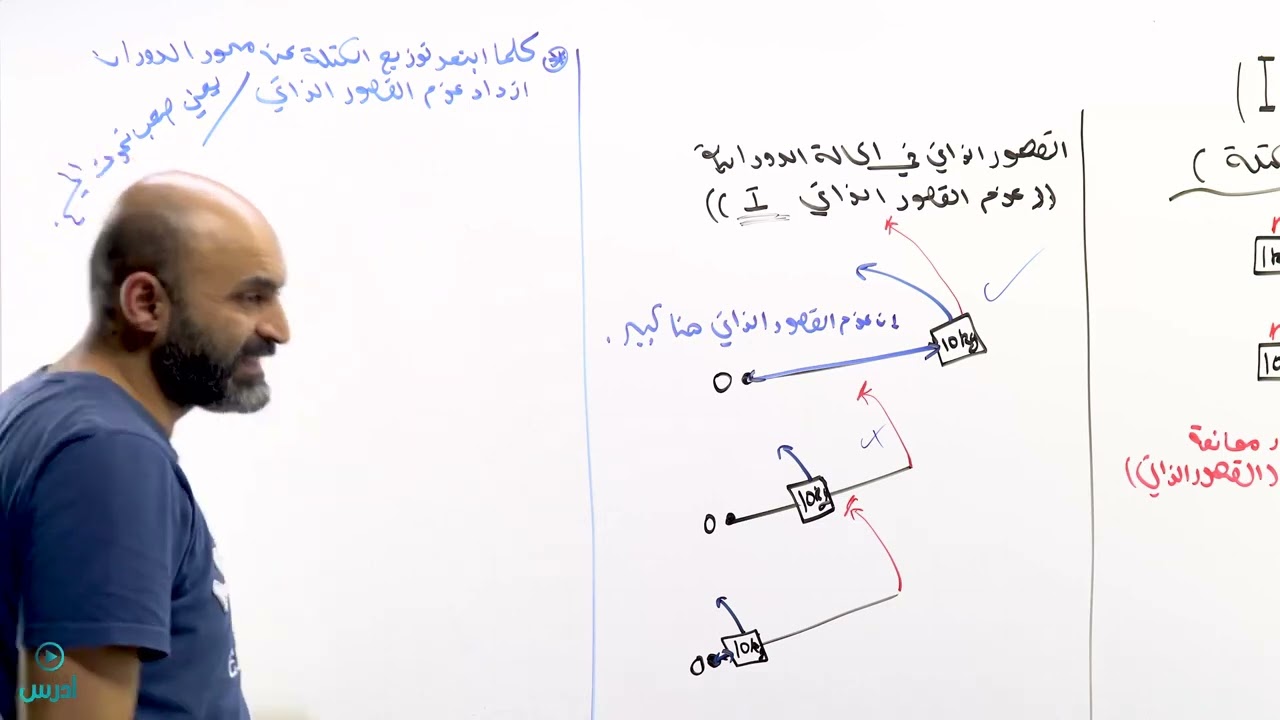 I)
كتلة)
1k
10
د ممانعة
د القصور الذاتي)
القصور الذاتي في الحالة الدورانية
((عزم القصور الذاتي I))
لان عزم القصور الذاتي هنا كبير.
10kg
O
10kg
O
10kg
O
* كلما ابتعد توزيع الكتلة عن محور الدوران
ازداد عزم القصور الذاتي
يعني صعب
ادرس